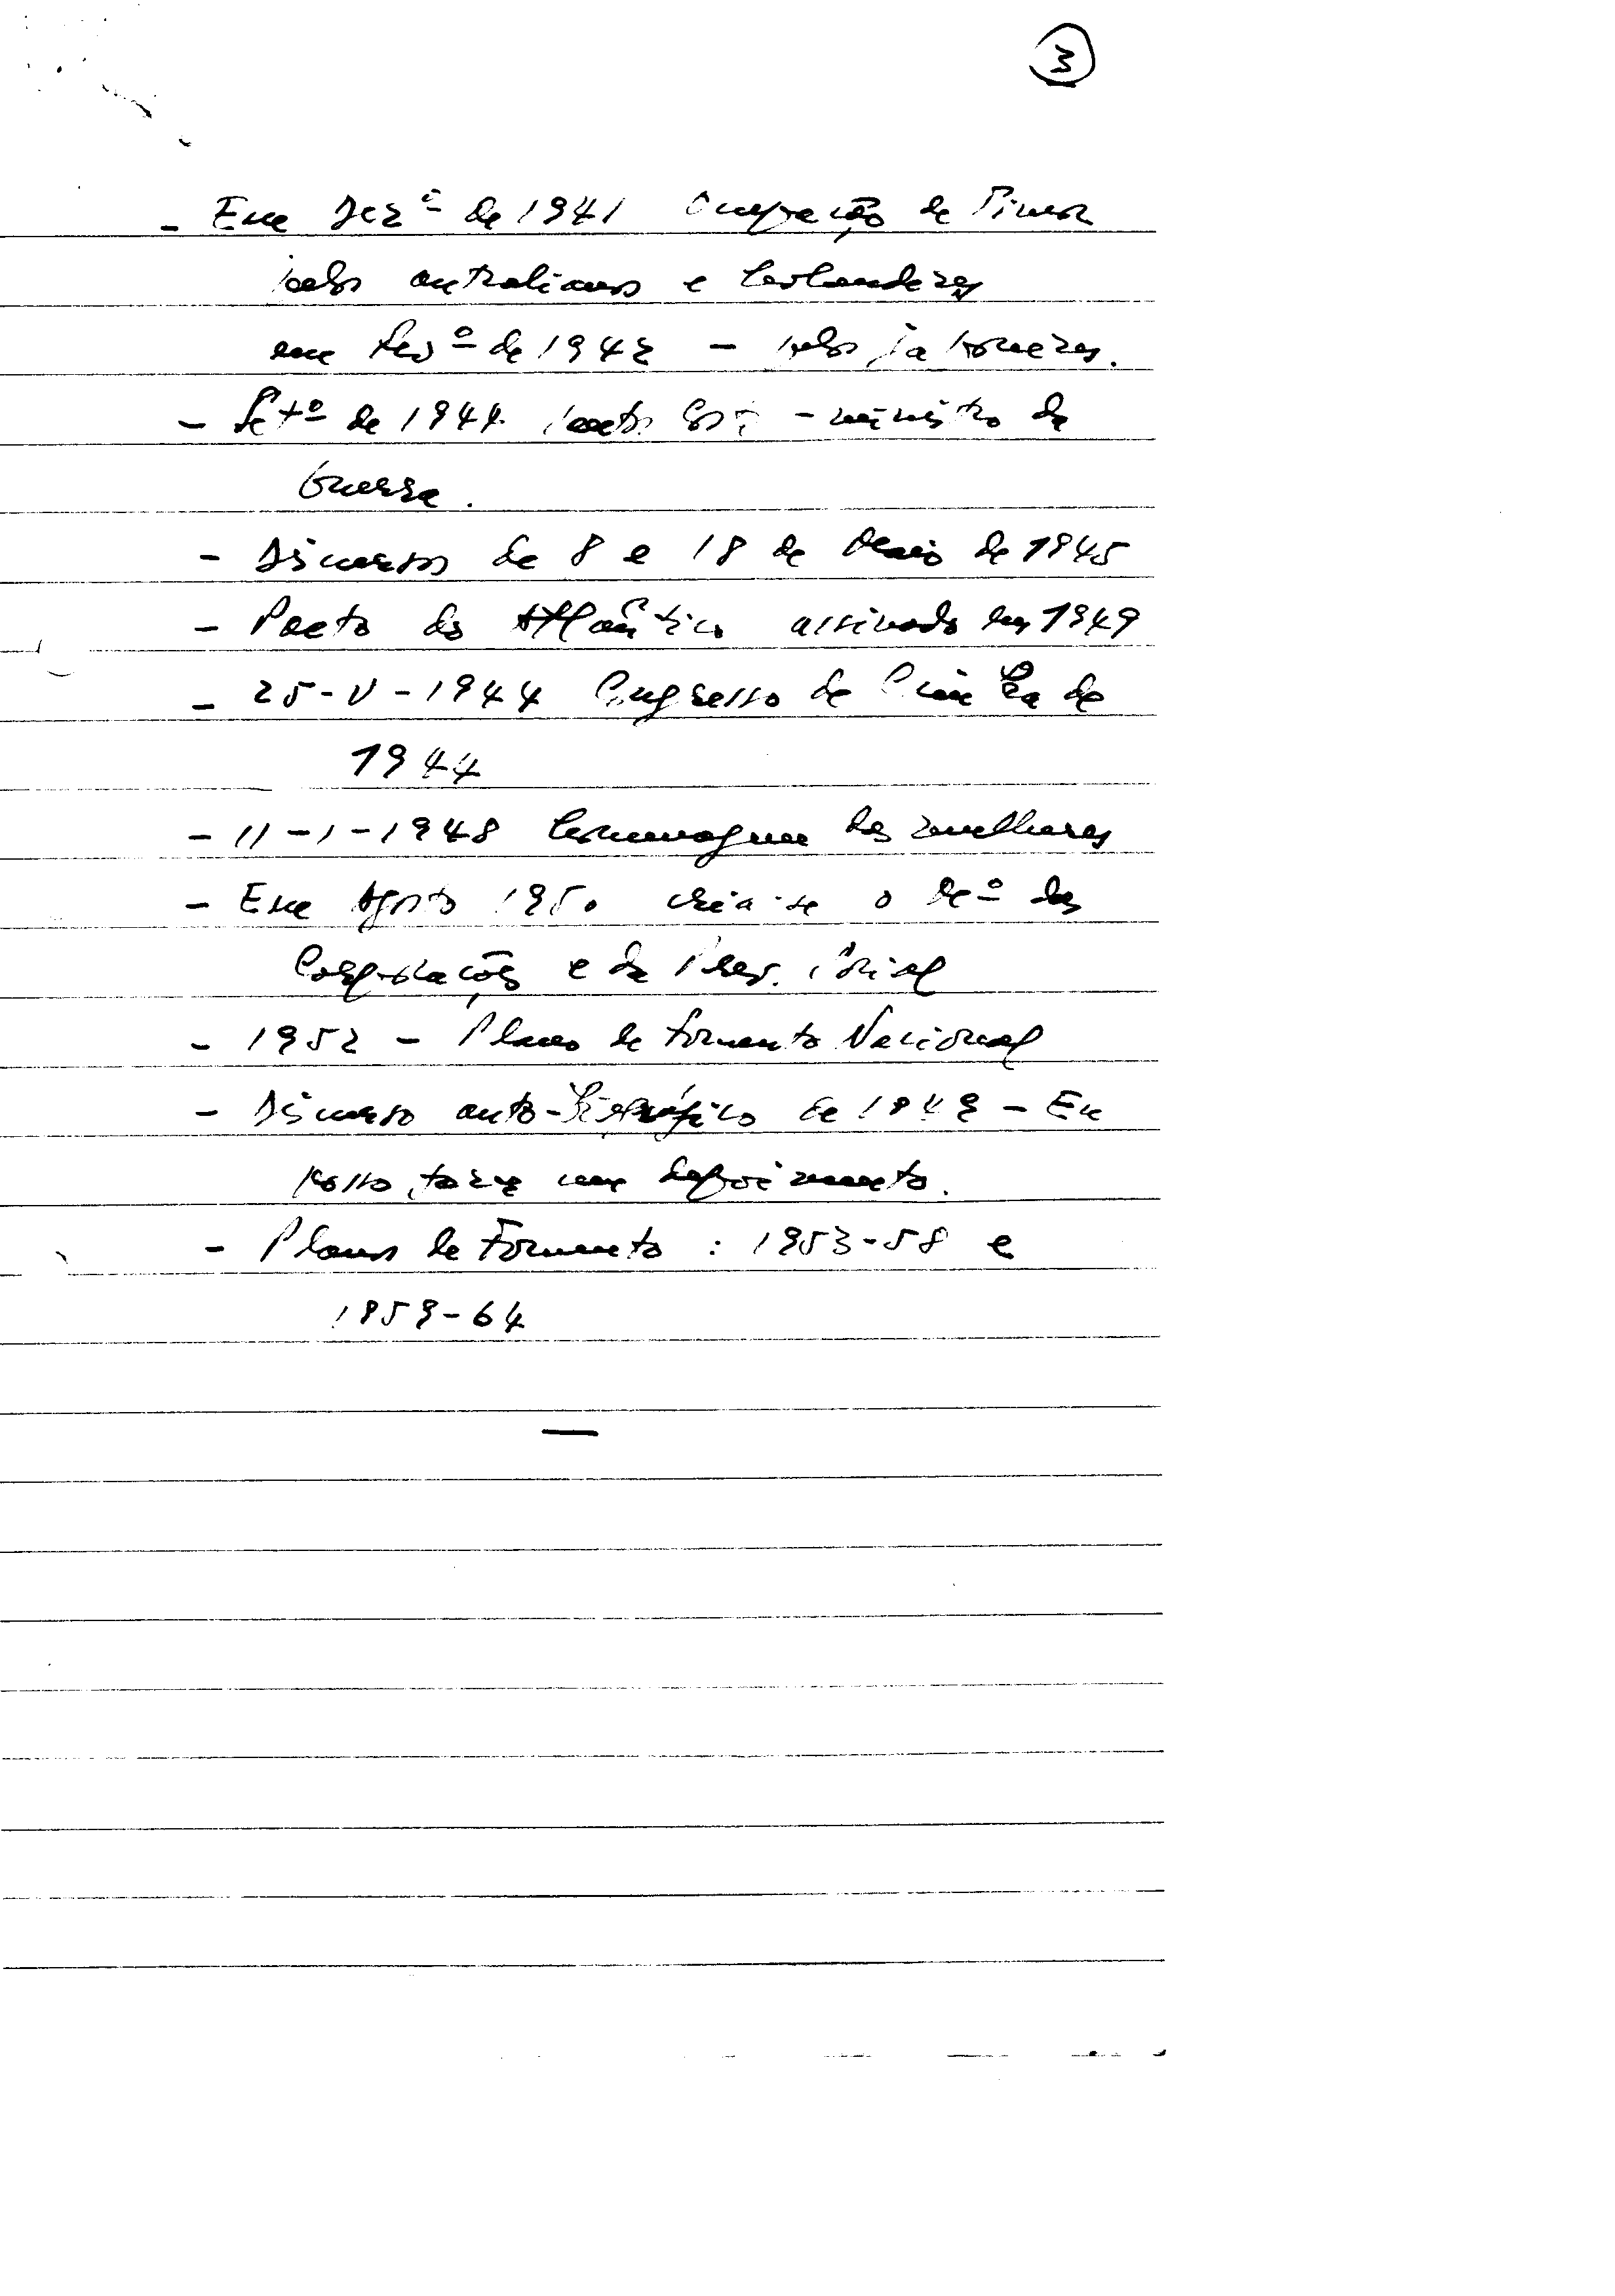 3
- Em Dezº de 1941 Ocupação de Timor
pelos australianos e holandeses
em Fevº de 1942 - pelos japoneses.
- Setº de 1944 Santos Costa - ministro da
Guerra.
- Discursos de 8 e 18 de Maio de 1945
- Pacto do Atlântico assinado em 1949
- 25-V-1944 Congresso da União Na de
1944
- 11-1-1948 homenagem das mulheres
- Em Agosto 1950 cria-se o das
Corporações e da Prev. Social
- 1952 - Plano de Fomento Nacional
- Discurso auto-biográfico de 1949 - Em
posso, fazer um depoimento.
- Planos de Fomento : 1953-58 e
1959-64